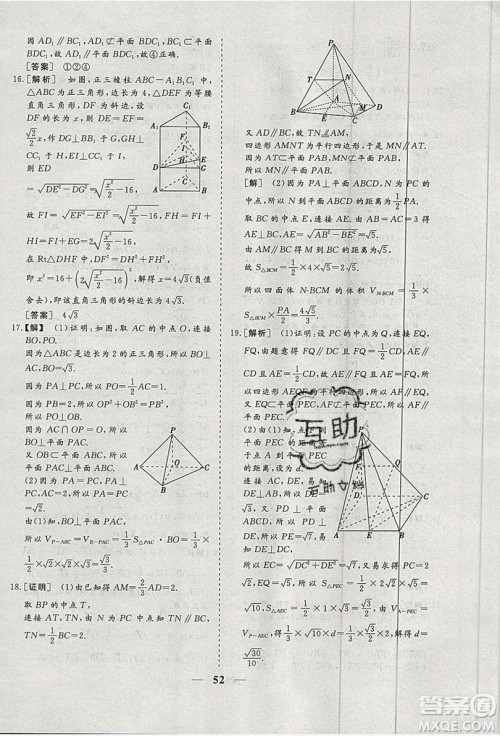 因为 AD₁∥BC₁,AD₁⊄平面 BDC₁,BC₁⊂平面
BDC₁,所以 AD₁∥平面 BDC₁,故④正确.
[答案] ①②④
16.[解析] 如图,正三棱柱 ABC-A₁B₁C₁ 中,
△ABC 为正三角形,边长为 4,△DEF 为等腰
直角三角形,DF 为斜边,设
DF 长为 x,则 DE=EF=
√2/2 x,作 DG⊥BB₁ 于 G,
所以 ED
=√(DE²-DG²)=√(x²/2-16),
故 FI=√(x²/2-16),FH=FI
+HI=FI+EG=2√(x²/2-16),
在 Rt△DHF 中,DF²=DH²+FH²,
即 x²=16+(2√(x²/2-16))²,解得 x=4√3(负值
舍去),即该直角三角形斜边长为 4√3.
[答案] 4√3
17.[解] (1)证明:如图,取 AC 的中点 O,连接
BO,PO.
因为△ABC 是边长为 2 的正三角形,
所以 BO⊥AC,BO=√3.
因为 PA⊥PC,所以 PO=1/2 AC=1.
因为 PB=2,所以 OP²+OB²=PB².
所以 PO⊥OB.
因为 AC∩OP=O,
所以 BO⊥平面 PAC.
又因为 OB⊂平面 ABC,
所以平面 PAC⊥平面 ABC.
(2)因为 PA=PC,PA⊥PC,AC=2,
所以 PA=PC=√2.
由(1)知,BO⊥平面 PAC.
所以 V_{P-ABC}=V_{B-PAC}=1/3 S△PAC·BO=1/3×
1/2×√2×√2×√3=√3/3.
18.[证明] (1)由已知得 AM=2/3 AD=2.
取 BP 的中点 T,
连接 AT,TN,由 N 为 PC 中点知 TN∥BC,
TN=1/2 BC=2.
又 AD∥BC,故 TN⫽AM,
四边形 AMNT 为平行四边形,于是 MN∥AT.
因为 AT⊂平面 PAB,MN⊄平面 PAB,
所以 MN∥平面 PAB.
[解] (2)因为 PA⊥平面 ABCD,N 为 PC 的
中点,所以 N 到平面 ABCD 的距离为 1/2 PA.
取 BC 的中点 E,连接 AE,由 AB=AC=3 得
AE⊥BC,AE=√(AB²-BE²)=√5.
由 AM∥BC 得 M 到 BC 的距离为 √5,
故 S△BCM=1/2×4×√5=2√5.
所以四面体 N-BCM 的体积 V_{N-BCM}=1/3·
S△BCM·PA/2=4√5/3.
19.[解析] (1)证明:设 PC 的中点为 Q,连接
EQ,FQ.
由题意,得 FQ∥DC 且 FQ=1/2 CD,AE∥CD
且 AE=1/2 CD,故 AE∥FQ 且 AE=FQ,所以
四边形 AEQF 为平行四边形,所以 AF∥EQ,
又 EQ⊂平面 PEC,AF⊄平面 PEC,所以 AF
∥平面 PEC.
(2)由(1),知点 F
到平面 PEC 的距离等
于点 A 到平面 PEC
的距离,设为 d.
连接 AC,DE,易知
DE=1.
由题意,知 PD⊥
底面 ABCD,
所以 PD⊥DE,
又 DE⊥DC,
DC∩PD=D,故
DE⊥平面 PCD,
所以 DE⊥PC.
因为 EC=√(DE²+DC²)=√5,又易求得 PE=
√2,PC=√5,所以 S△PEC=√6/2,又 S△AEC=1/2×1
×1=1/2,所以由 V_{F-AEC}=V_{A-PEC},得 d=
√30/10.
52
互助
互助文库
作业帮
MXQE.COM